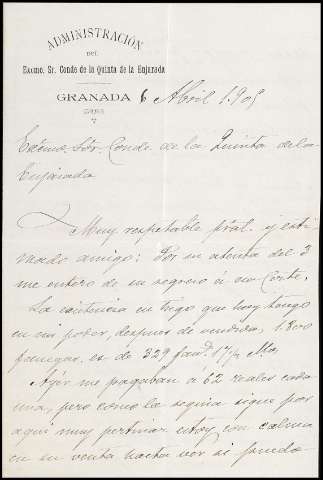 ADMINISTRACIÓN
DEL
EXCMO. SR. CONDE DE LA QUINTA DE LA ENJARADA
GRANADA 6 Abril 1.905
Exćmo. Sór. Conde de la Quinta de la
Enjarada
Muy respetable pral. y esti
mado amigo: Por su atenta del 3
me entero de su regreso á esa Corte.
La existencia en trigo que hoy tengo
en mi poder, despues de vendidas, 1.800
fanegas, es de 329 fand. 17/
Ayér me pagaban á 62 reales cada
una, pero como la sequia sigue por
aqui muy pertinaz estoy con calma
en su venta hasta ver si puedo